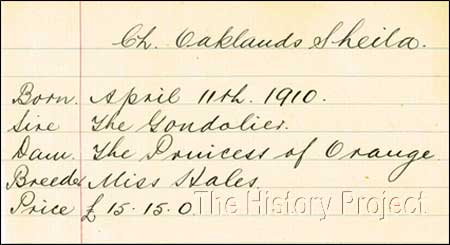 Ch. Oaklands Sheila.
Born. April 11th. 1910.
Sire The Gondolier.
Dam. The Princess of Orange
Breeder Miss Hales
Price £ 15. 15. 0.
The History Project